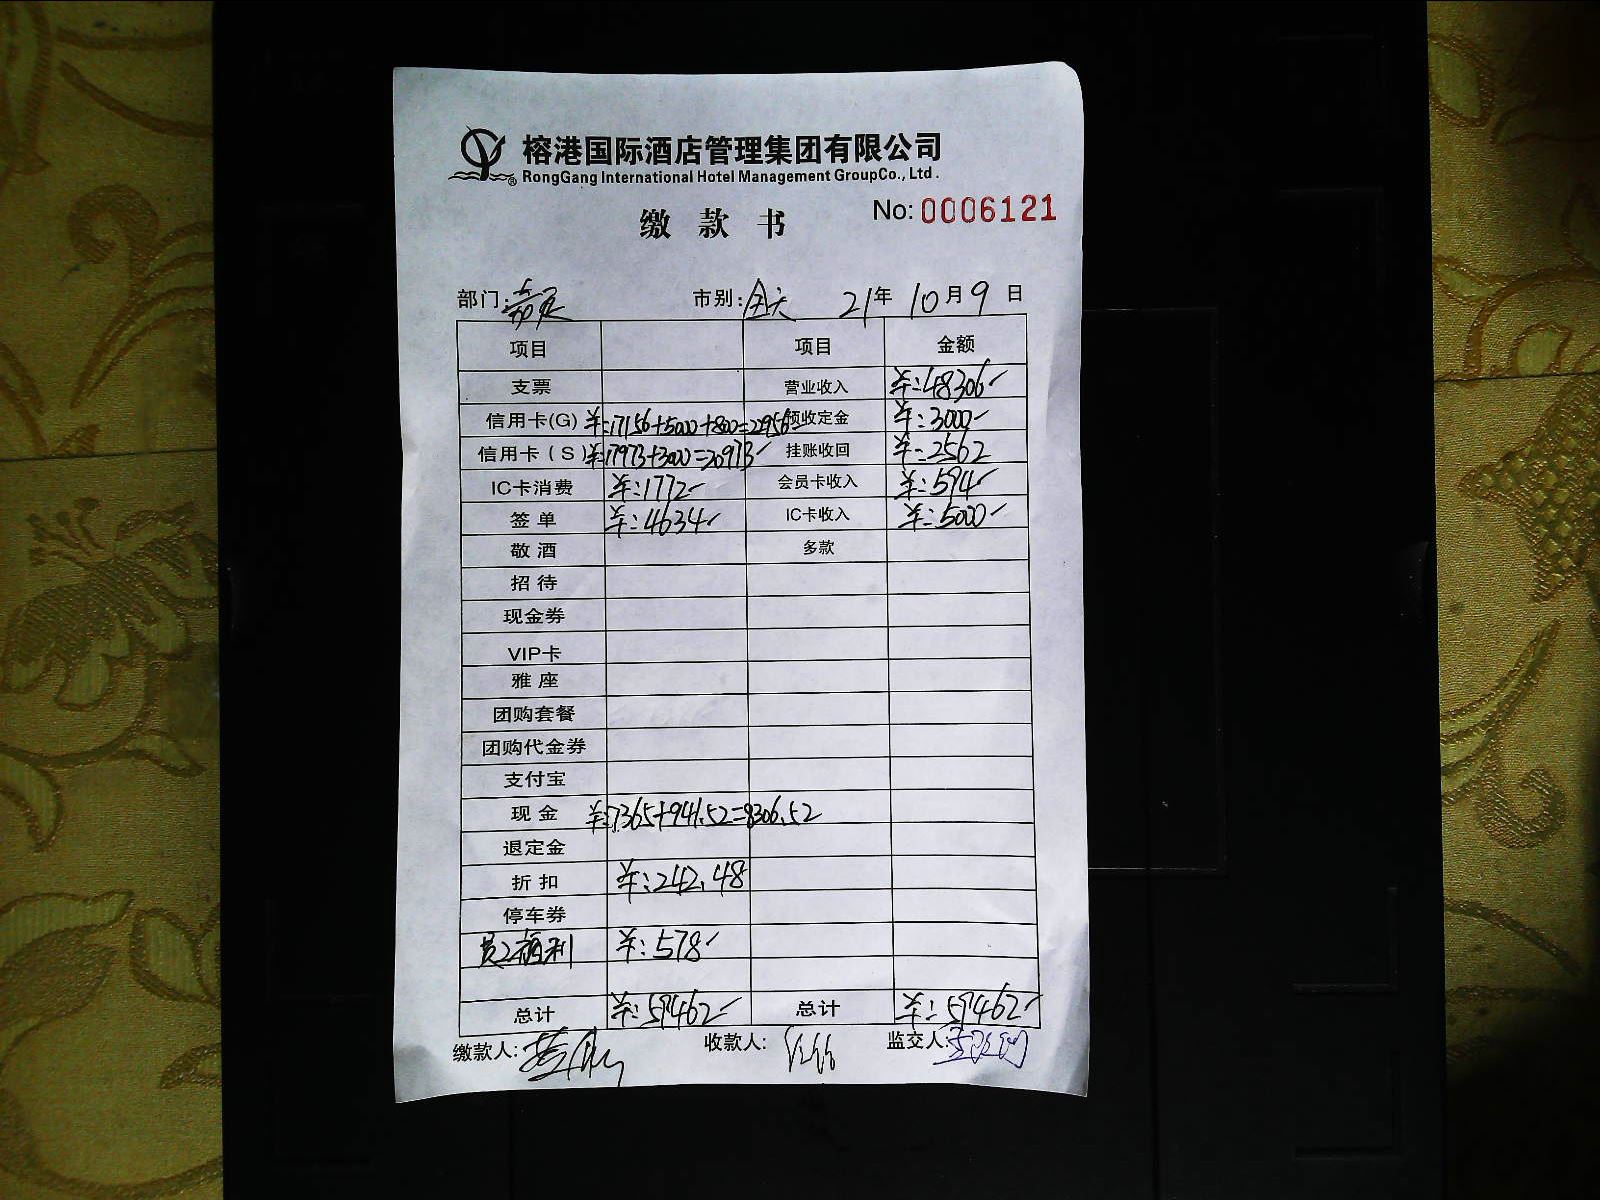 榕港国际酒店管理集团有限公司
RongGang International Hotel Management GroupCo., Ltd.
缴款书 No: 0006121
部门: 市别: 全天 21年 10月 9日
项目 项目 金额
支票 营业收入 ¥:48306-
信用卡(G) ¥:17156+5000+800=22956- 预收定金 ¥:3000-
信用卡(S) ¥:17973+3000=20973- 挂账收回 ¥:2562
IC卡消费 ¥:1772- 会员卡收入 ¥:594-
签单 ¥:4634- IC卡收入 ¥:5000-
敬酒 多款
招待
现金券
VIP卡
雅座
团购套餐
团购代金券
支付宝
现金 ¥:7365+941.52=8306.52
退定金
折扣 ¥:242.48
停车券
员工福利 ¥:578-
总计 ¥:59462- 总计 ¥:59462-
缴款人: 收款人: 监交人: